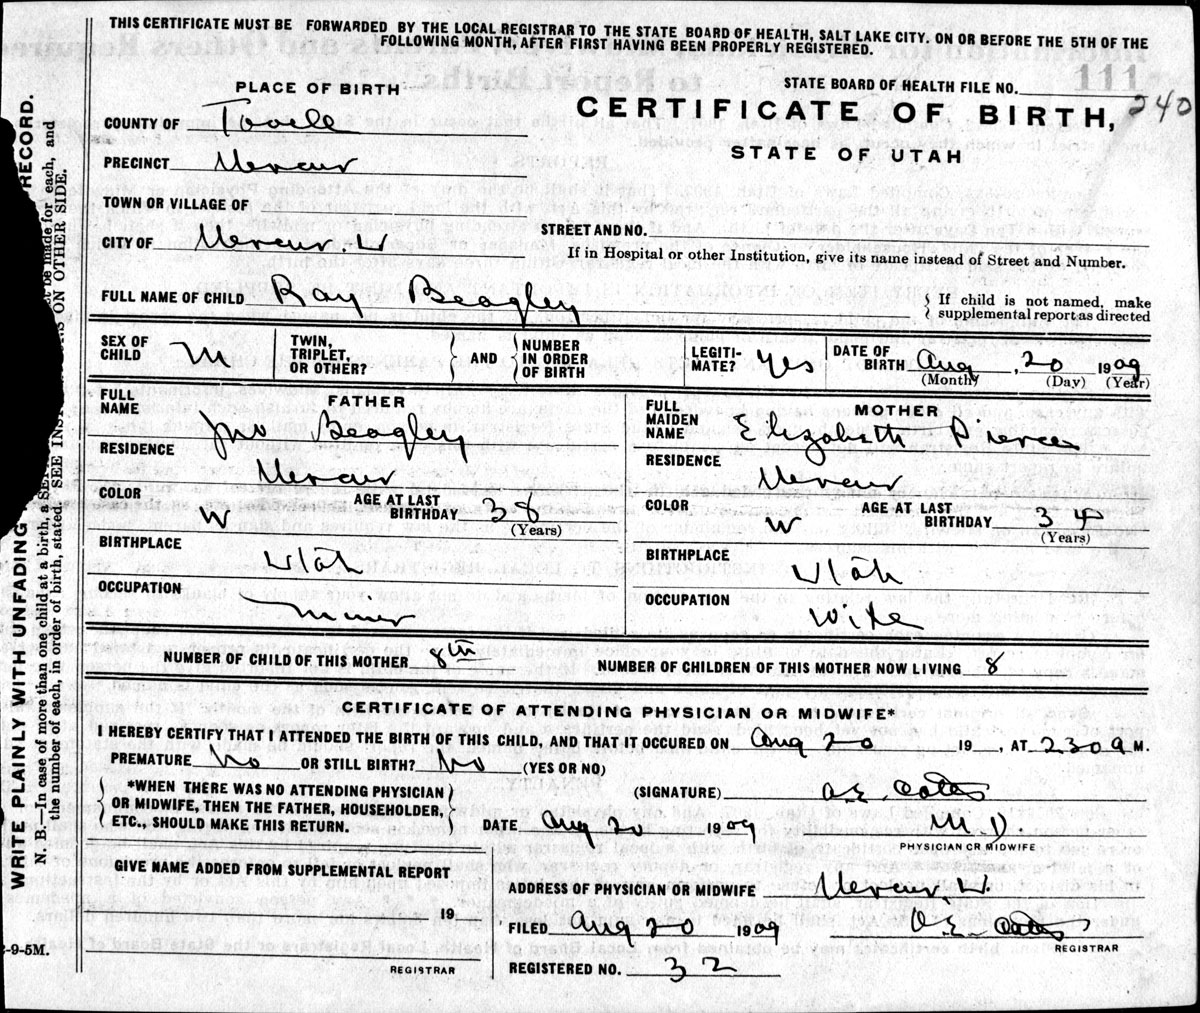 THIS CERTIFICATE MUST BE FORWARDED BY THE LOCAL REGISTRAR TO THE STATE BOARD OF HEALTH, SALT LAKE CITY, ON OR BEFORE THE 5TH OF THE
FOLLOWING MONTH, AFTER FIRST HAVING BEEN PROPERLY REGISTERED.
111
STATE BOARD OF HEALTH FILE NO.
240
PLACE OF BIRTH
CERTIFICATE OF BIRTH,
STATE OF UTAH
COUNTY OF Tooele
PRECINCT Mercur
TOWN OR VILLAGE OF
CITY OF Mercur, U
STREET AND NO.
If in Hospital or other Institution, give its name instead of Street and Number.
FULL NAME OF CHILD Ray Beagley
{ If child is not named, make
{ supplemental report as directed
SEX OF CHILD M
TWIN, TRIPLET, OR OTHER? } AND { NUMBER IN ORDER OF BIRTH
LEGITIMATE? Yes
DATE OF BIRTH Aug, 20 1909
(Month) (Day) (Year)
FATHER
FULL NAME Jno Beagley
RESIDENCE Mercur
COLOR W AGE AT LAST BIRTHDAY 38
(Years)
BIRTHPLACE Utah
OCCUPATION Miner
MOTHER
FULL MAIDEN NAME Elizabeth Pierce
RESIDENCE Mercur
COLOR W AGE AT LAST BIRTHDAY 34
(Years)
BIRTHPLACE Utah
OCCUPATION Wife
NUMBER OF CHILD OF THIS MOTHER 8th NUMBER OF CHILDREN OF THIS MOTHER NOW LIVING 8
CERTIFICATE OF ATTENDING PHYSICIAN OR MIDWIFE*
I HEREBY CERTIFY THAT I ATTENDED THE BIRTH OF THIS CHILD, AND THAT IT OCCURRED ON Aug 20 19 , AT 230 a M.
PREMATURE No OR STILL BIRTH? No (YES OR NO)
*WHEN THERE WAS NO ATTENDING PHYSICIAN
OR MIDWIFE, THEN THE FATHER, HOUSEHOLDER,
ETC., SHOULD MAKE THIS RETURN.
(SIGNATURE)
DATE Aug 20 1909 M D
PHYSICIAN OR MIDWIFE
GIVE NAME ADDED FROM SUPPLEMENTAL REPORT
19
REGISTRAR
ADDRESS OF PHYSICIAN OR MIDWIFE Mercur, U
FILED Aug 20 1909
REGISTRAR
REGISTERED NO. 32
WRITE PLAINLY WITH UNFADING RECORD.
N. B.—In case of more than one child at a birth, a SE be made for each, and
the number of each, in order of birth, stated. SEE INST ON OTHER SIDE.
-9-5M.